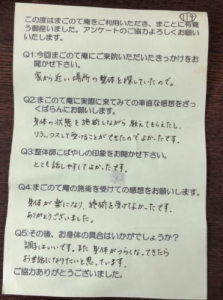 この度はまごのて庵をご利用いただき、まことに有難
う御座いました。アンケートのご協力よろしくお願い
いたします。
Q1:今回まごのて庵にご来院いただいたきっかけをお
聞かせ下さい。
家から近い場所の整体を探していたので。
Q2:まごのて庵に実際に来てみての率直な感想をざっ
くばらんにお願いします。
身体の状態を施術しながら教えてもらえたし、
リラックスして受けることができたのでよかったです。
Q3:整体師こばやしの印象をお聞かせ下さい。
とても話しやすくてよかったです。
Q4:まごのて庵の施術を受けての感想をお願いします。
身体が楽になり、施術を受けてよかったです。
ありがとうございました。
Q5:その後、お身体の具合はいかがでしょうか?
調子はいいです。また身体がつらくなってきたら
お世話になりたいと思っています。
ご協力ありがとうございました。